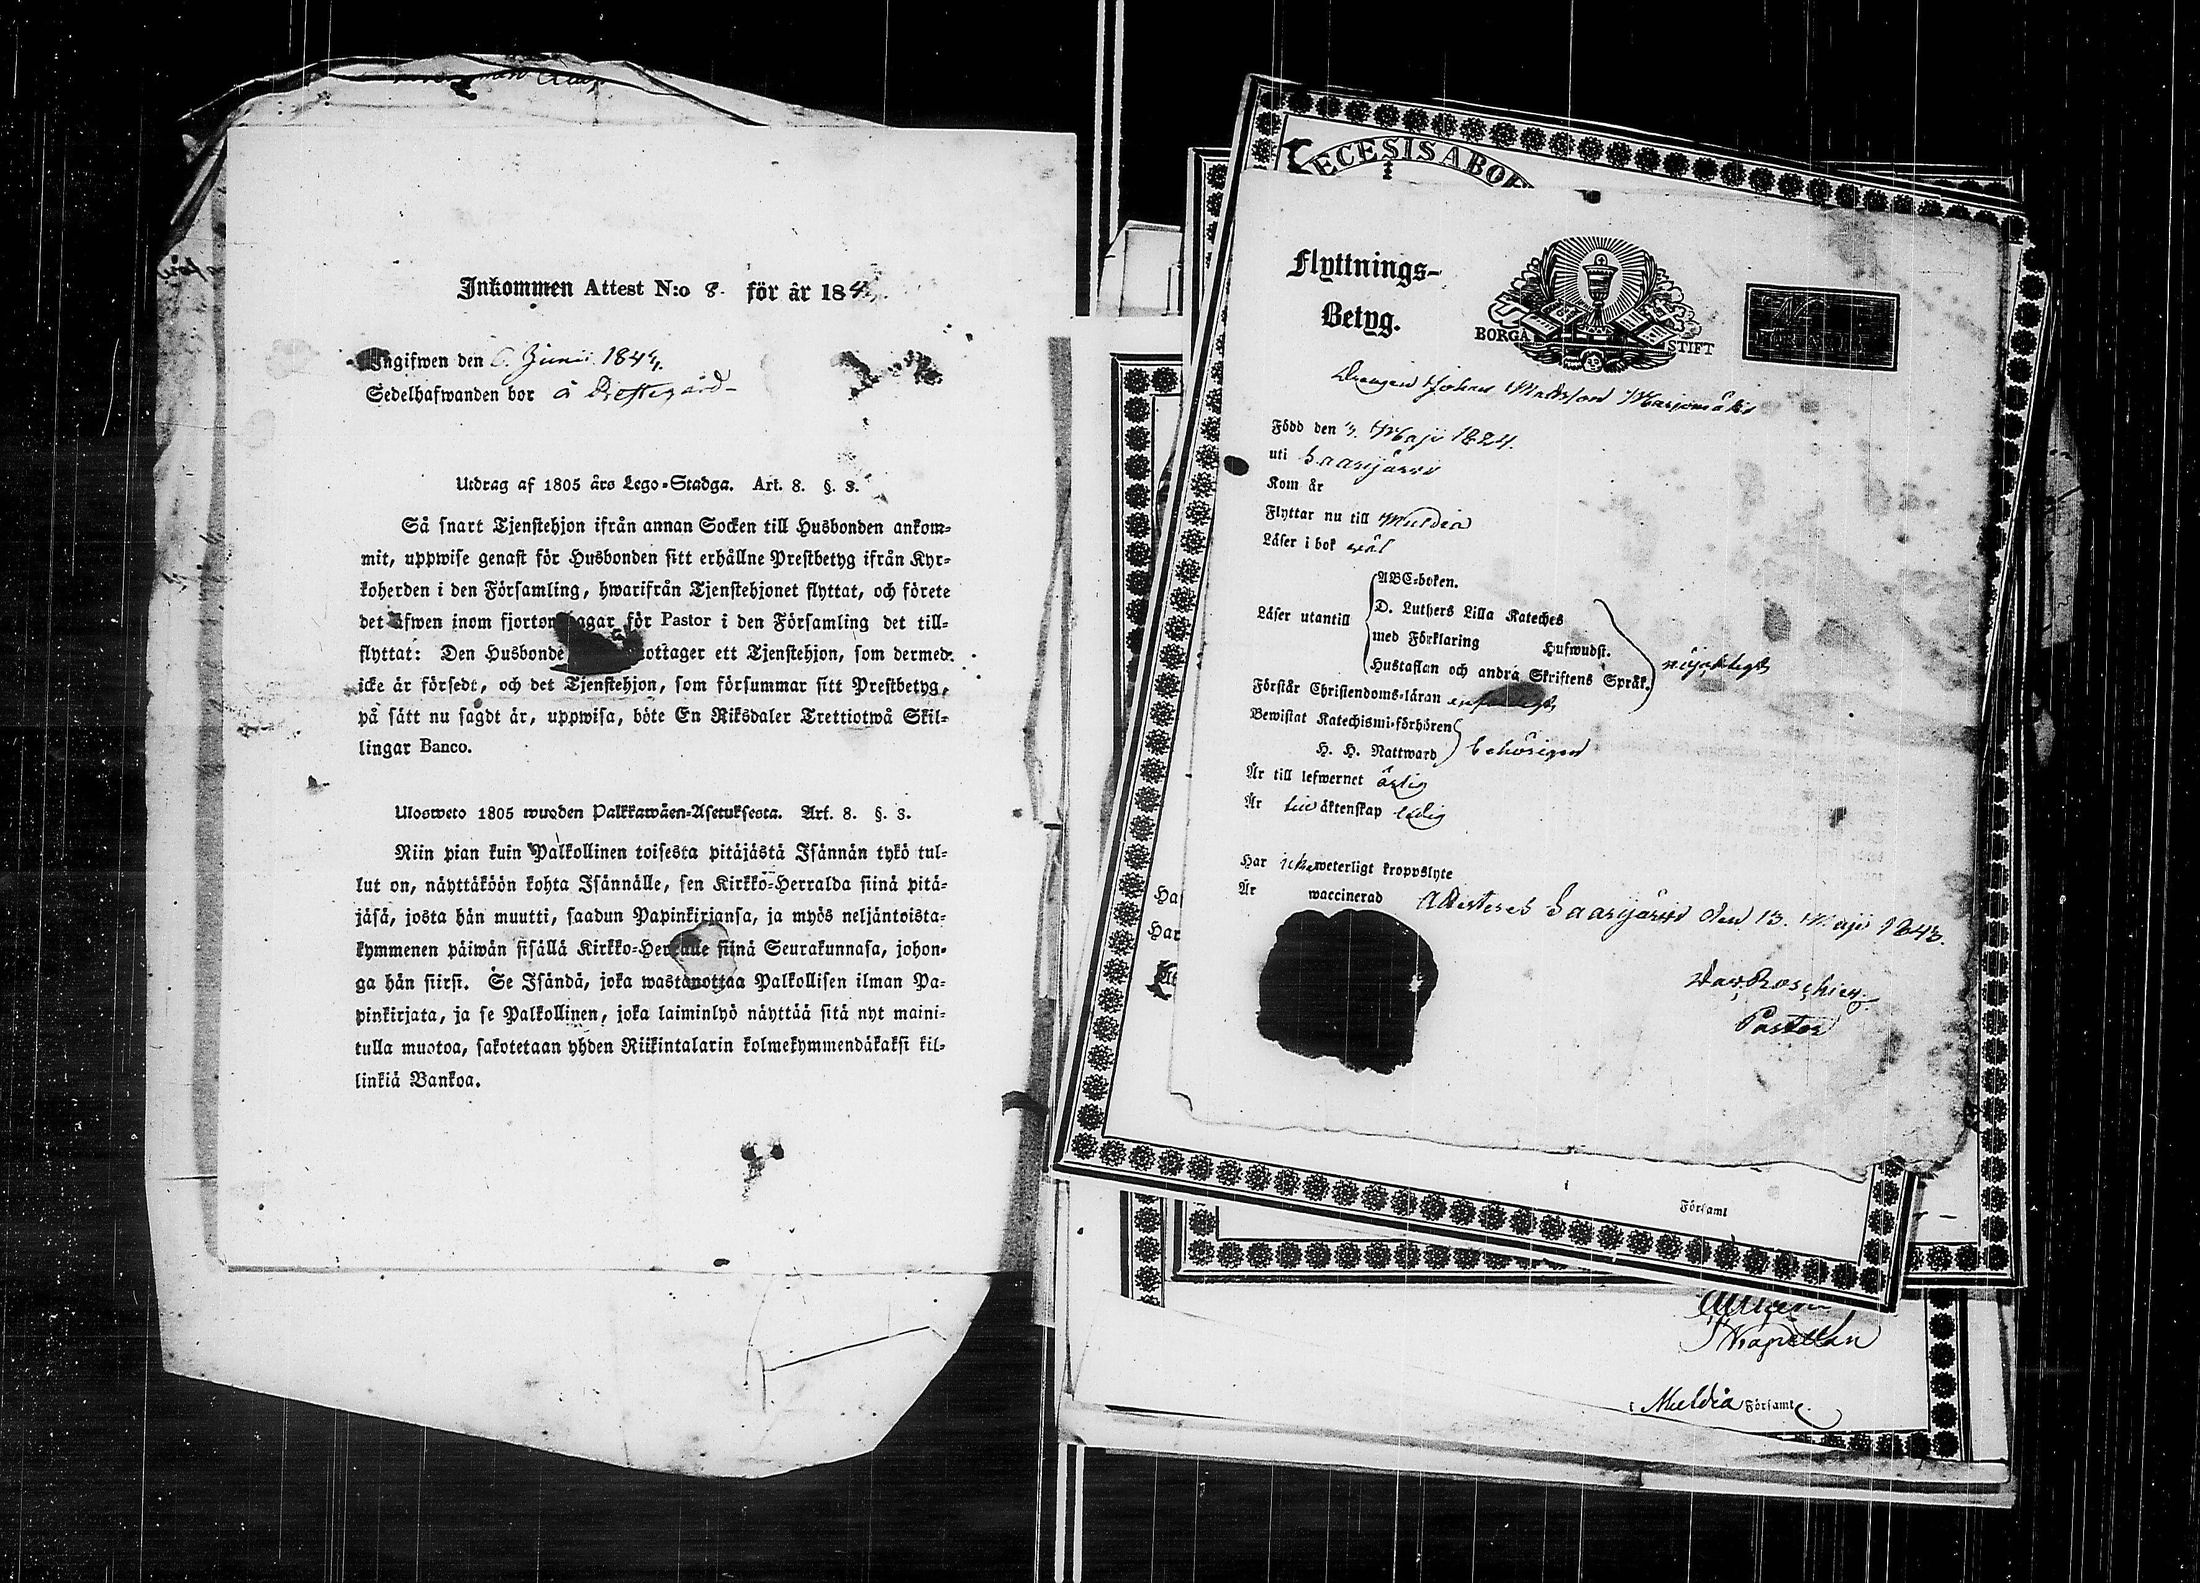 Inkommen Attest N:o 8. för år 184
Ingifwen den 6. Junii 1844.
Sedelhafwanden bor å Prestegård
Utdrag af 1805 års Lego-Stadga. Art. 8. §. 3.
Så snart Tjenstehjon ifrån annan Socken till Husbonden ankom-
mit, uppwise genast för Husbonden sitt erhållne Prestbetyg ifrån Kyr-
koherden i den Församling, hwarifrån Tjenstehjonet flyttat, och förete
det äfwen inom fjorton dagar för Pastor i den Församling det till-
flyttat: Den Husbonde ottager ett Tjenstehjon, som dermed
icke är försedt, och det Tjenstehjon, som försummar sitt Prestbetyg,
på sätt nu sagdt är, uppwisa, böte En Riksdaler Trettiotwå Skil-
lingar Banco.
Ulosweto 1805 wuoden Palkkawäen-Asetuksesta. Art. 8. §. 3.
Niin pian kuin Palkollinen toisesta pitäjästä Isännän tykö tul-
lut on, näyttäköön kohta Isännälle, sen Kirkko-Herralda siinä pitä-
jäsä, josta hän muutti, saadun Papinkirjansa, ja myös neljäntoista-
kymmenen päiwän sisällä Kirkko-Herralle siinä Seurakunnasa, johon-
ga hän siirsi. Se Isändä, joka wastanottaa Palkollisen ilman Pa-
pinkirjata, ja se Palkollinen, joka laiminlyö näyttää sitä nyt maini-
tulla muotoa, sakotetaan yhden Riikintalarin kolmekymmendäkaksi kil-
linkiä Bankoa.
ECESIS ABOE
Flyttnings-
Betyg.
BORGÅ STIFT
Drengen Johan Mattsson Marjomäki
Född den 3. Maji 1824.
uti Saarijärvi
Kom år
Flyttar nu till Muldia
Läser i bok wäl
Läser utantill
ABC-boken.
D. Luthers Lilla Kateches
med Förklaring Hufwudst.
Hustaflan och andra Skriftens Språk.
nöjaktigt
Förstår Christendoms-läran
Bewistat Katechismi-förhören
H. H. Nattward
behörigen
Är till lefwernet ärlig
Är till äktenskap ledig
Har icke weterligt kroppslyte
Är waccinerad
Attesteras Saarijärvi den 13. Maji 1843.
Dav. Roschier
Pastor
Har
Församl
Kapellan
i Muldia Församl.